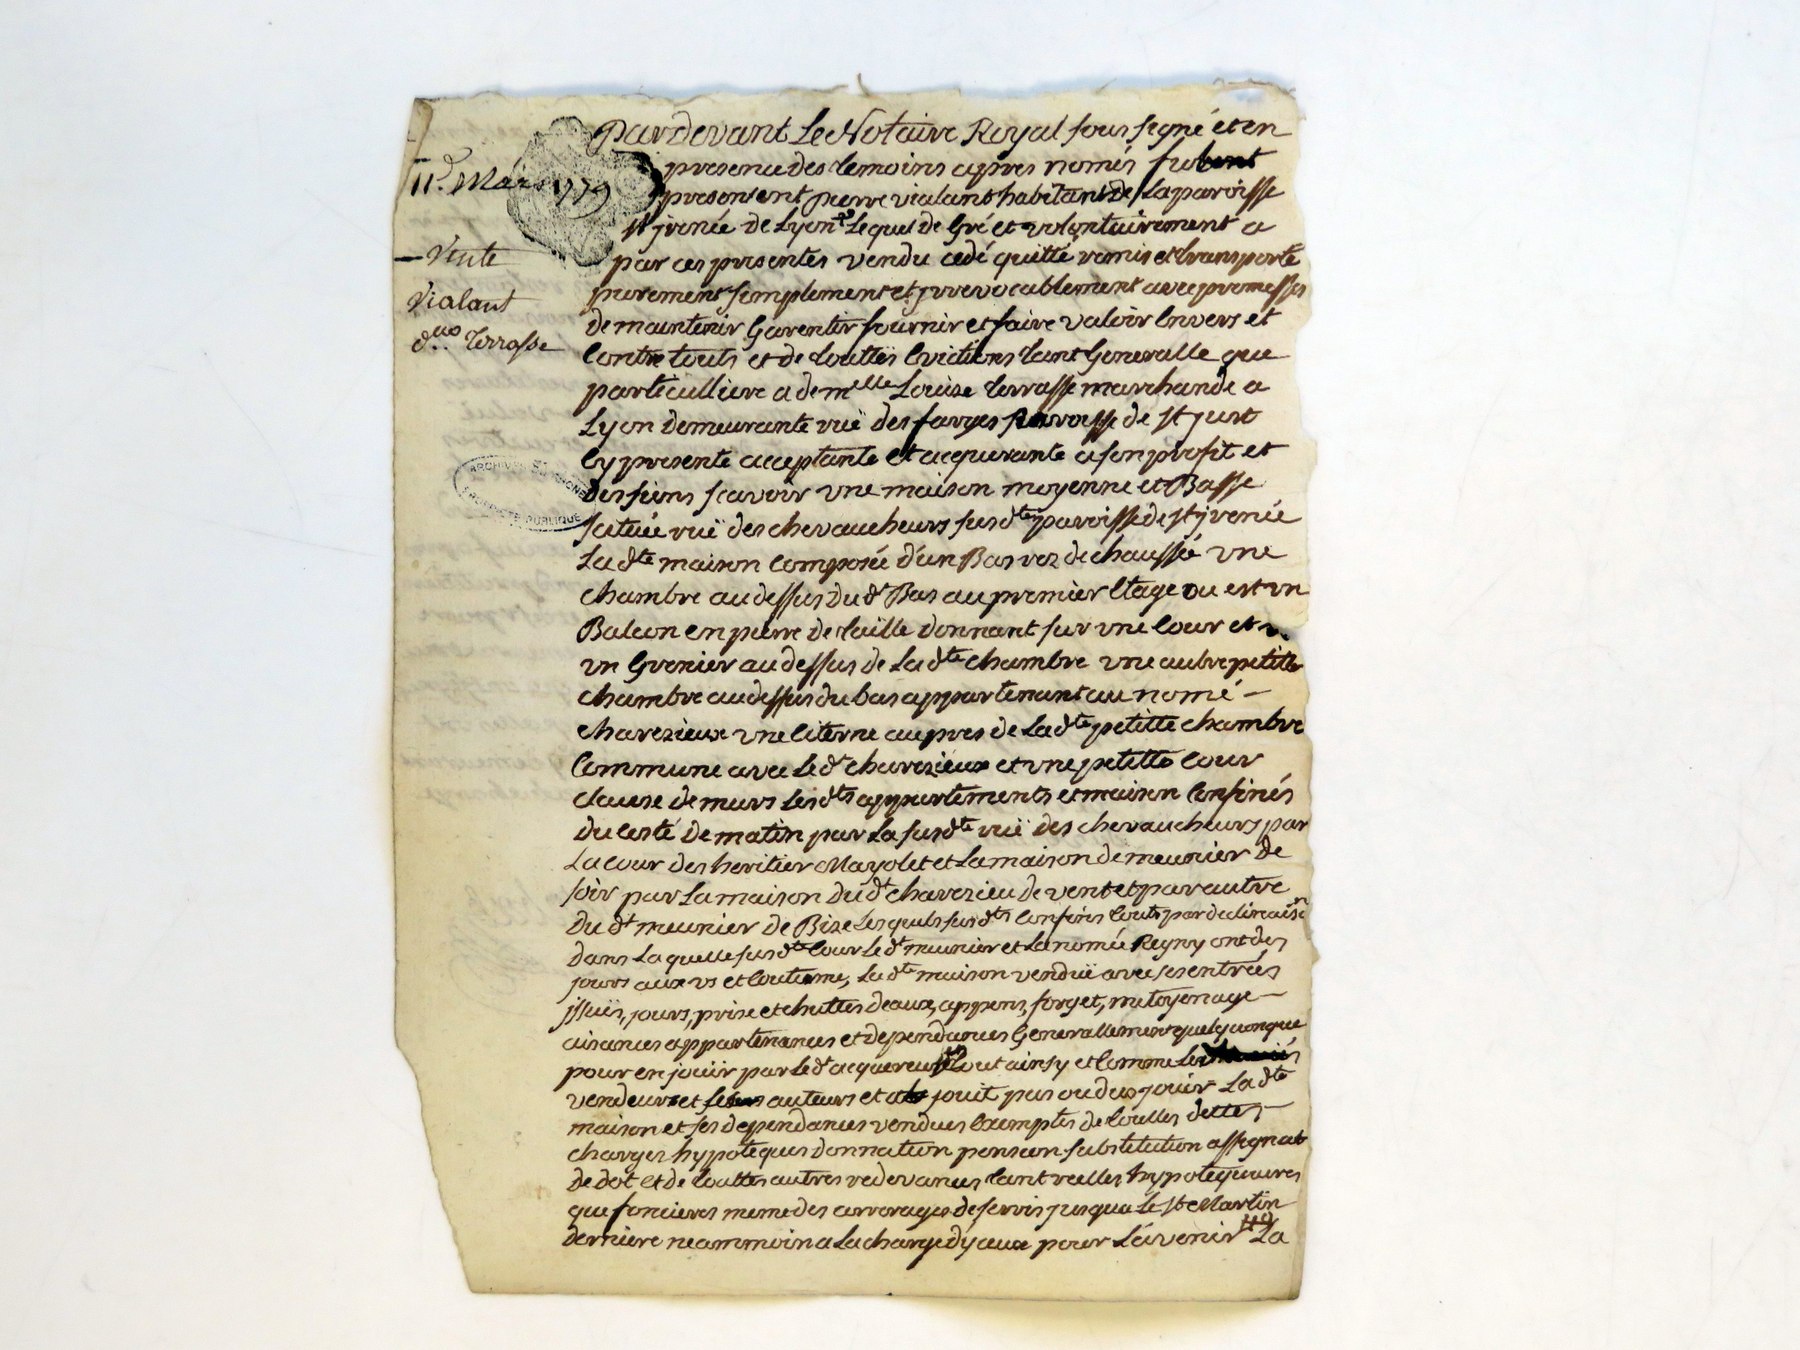 11.e Mars 1779
Vente
Vialant
d.lle Terrasse
ARCHIVES DU RHONE
PROPRIÉTÉ PUBLIQUE
Pardevant Le Notaire Royal sous signé et en
presence des temoins apres només fut
present ent pierre vialant habitant de La paroisse
st jrenée de Lyon Lequel de Gré et volontairement a
par ces presentes vendu cedé quitté remis et transporté
purement simplement et jrrevocablement avec promesses
de maintenir Garentir fournir et faire valoir Envers et
Contre touts et de touttes Evictions tant Generalle que
particulliere a demelle Louise terrasse marchande a
Lyon demeurante ruë des farges paroisse de st just
Cy presente acceptante et acquerante a son profit et
des siens scavoir vne maison moyenne et Basse
situéé ruë des chevaucheurs susdte paroisse de st jrenée
La dte maison Composéé d'un Bas rez de chaussée vne
chambre audessus du dt Bas au premier Etage ou est vn
Balcon en pierre de taille donnant sur vne Cour et
vn Grenier au dessus de La dte chambre vne autre petitte
chambre au dessus du bas appartenant au nomé
charezieux vne Citerne aupres de La dte petitte chambre
Commune avec Le dt charezieux et vne petitte Cour
clause de murs Les dts appartements et maison Confinés
du Costé de matin par La susdte ruë des chevaucheurs par
La cour des heritier Mayolet et La maison de meunier de
soir par La maison du dt charezieu de vent et par autre
du dt meunier de Bize Les quels susdts Confins touts par declinaison
dans La quelle susdte Cour Le dt meunier et La nomée Regny ont des
jours aux vs et Coutume, La dte maison venduë avec ses entréés
jssuës, jours, prise et chuttes deaux, appens, forget, mitoyenage
aisances appartenances et dependances Generallement quelquonque
pour en jouir par Le dt acquereuse tout ainsy et Comme Le
vendeur et ses auteurs et a jouit pus ou du jouir La dte
maison et ses dependances vendues Exemptes de touttes dettes
charges hypoteques donnation pension substitution assegnat
de dot et de touttes autres redevances tant reelles hypotequaires
que foncieres meme des arrerages de servis jusqua Le st Martin
derniere neammoin a La charge dyceux pour L'avenir La